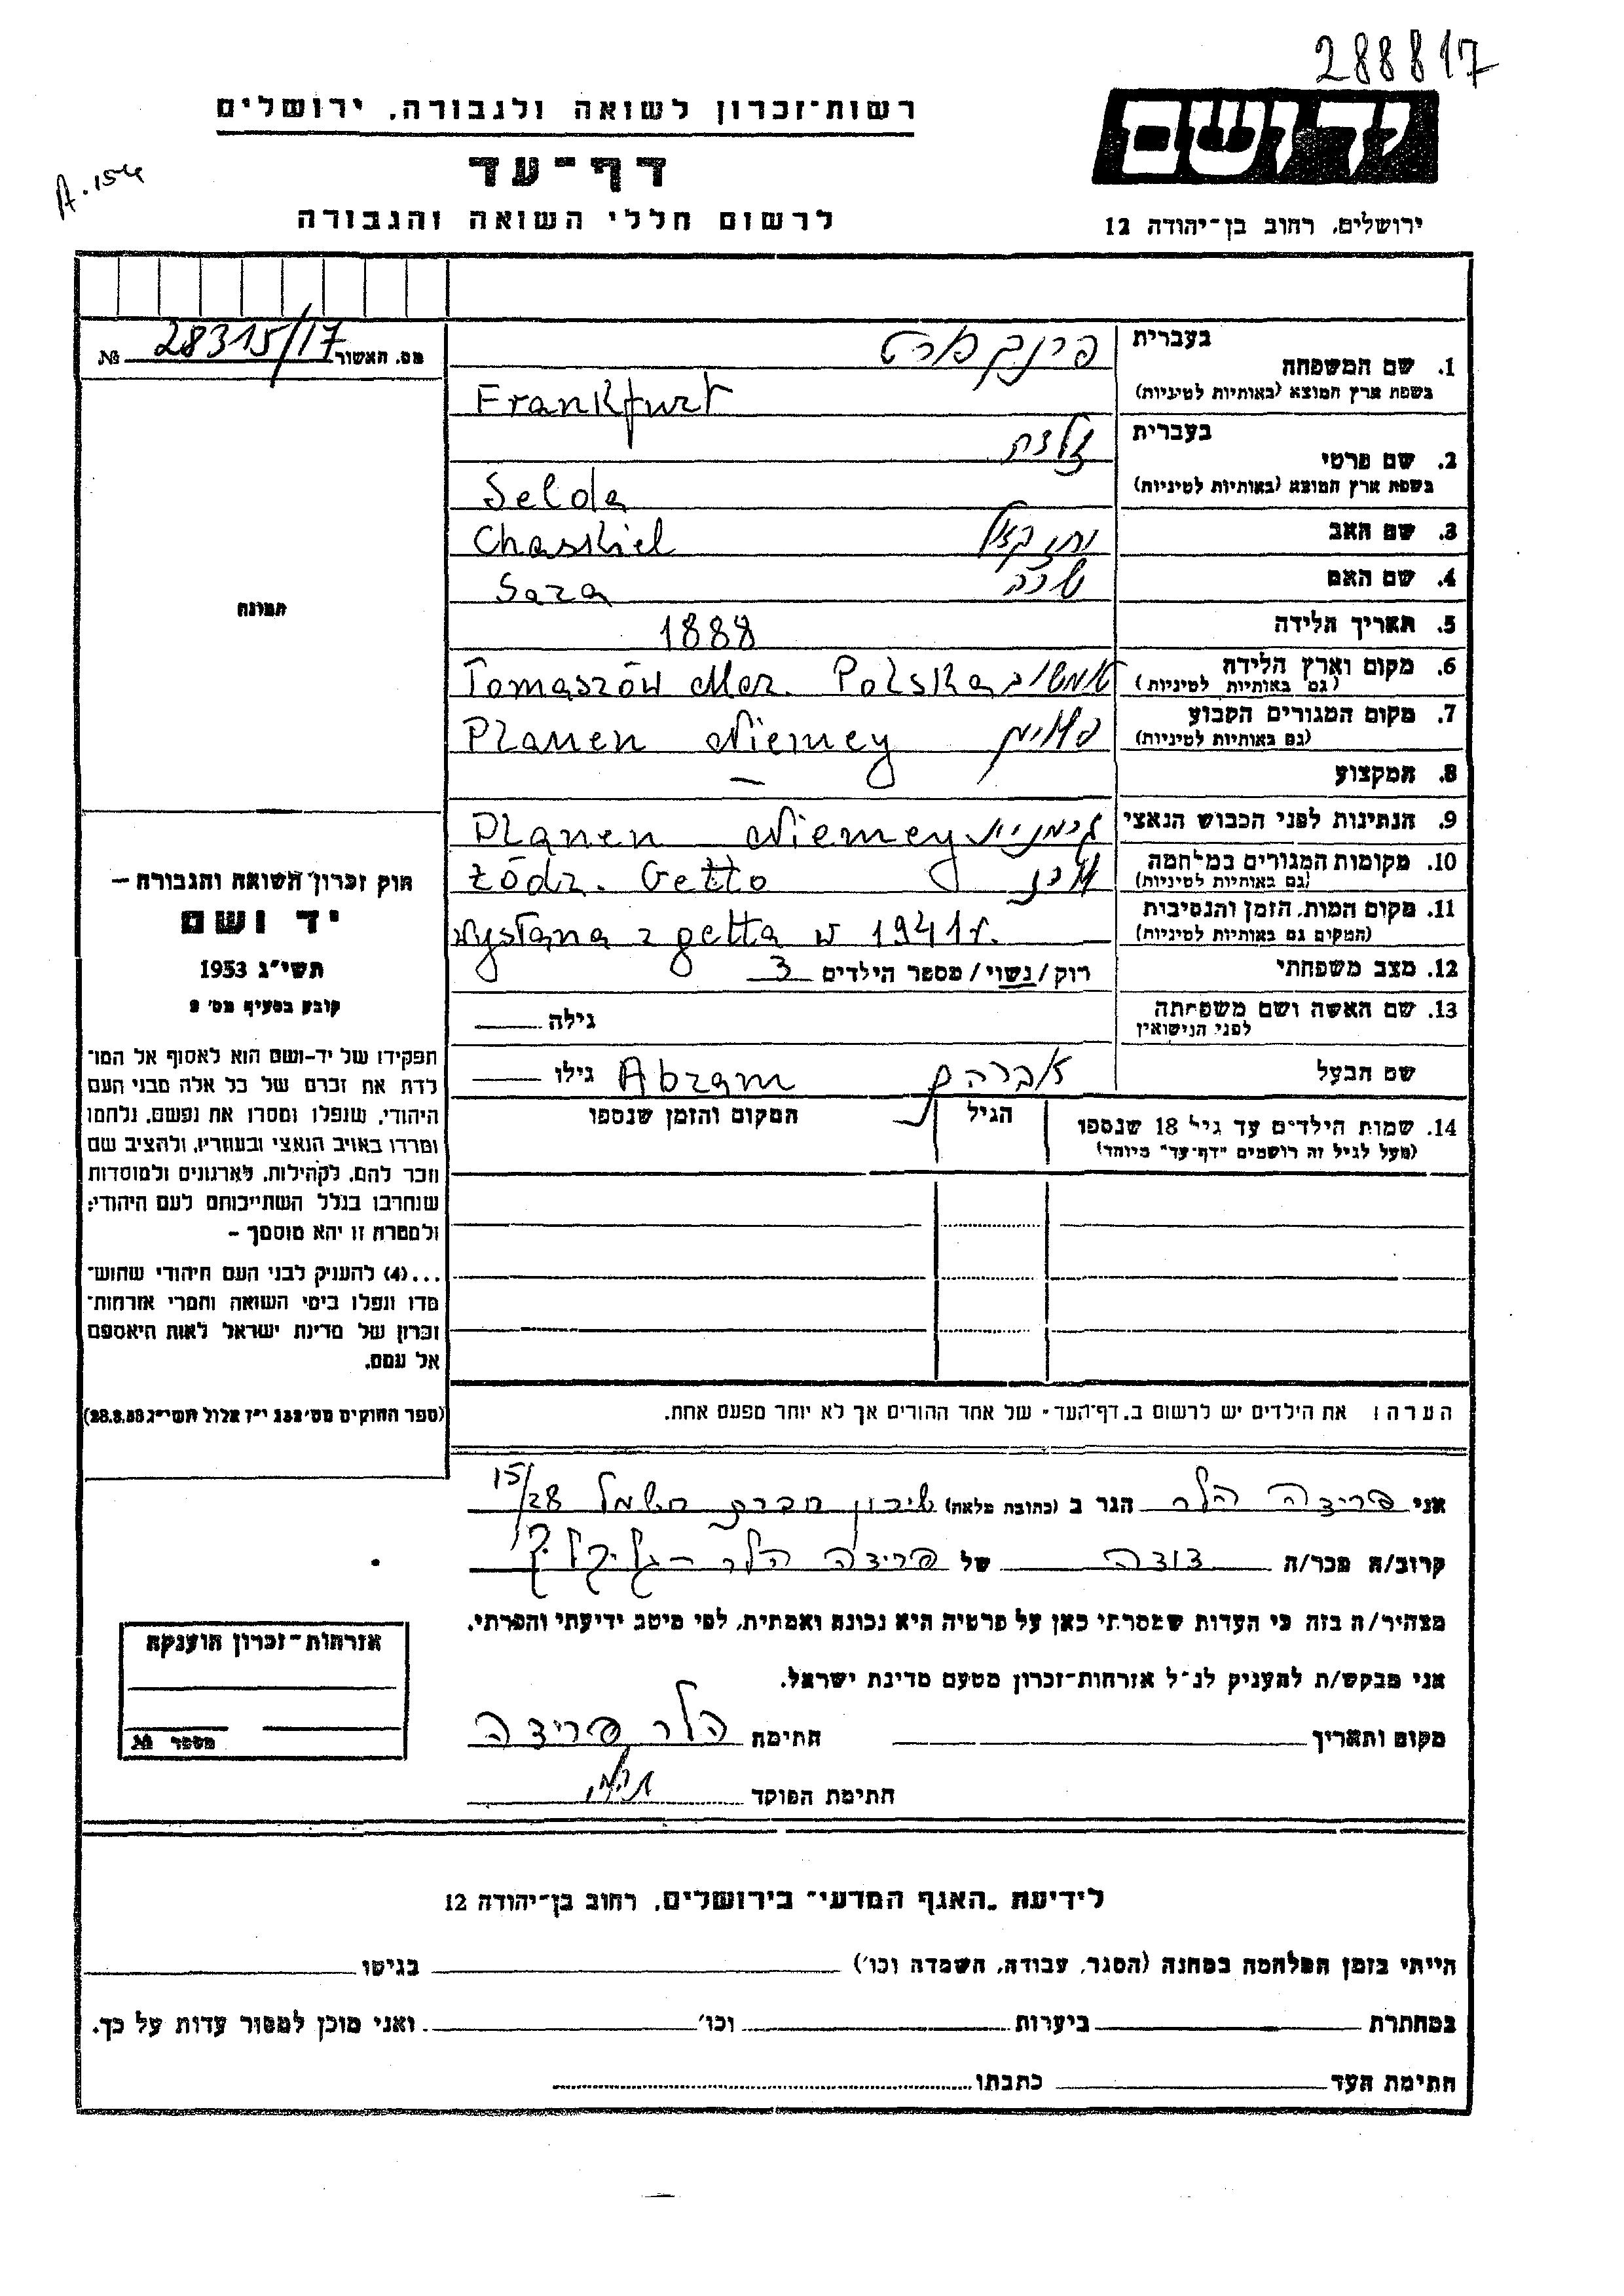 288817
יד ושם
רשות־זכרון לשואה ולגבורה, ירושלים
דף־עד
A.154
לרשום חללי השואה והגבורה
ירושלים, רחוב בן־יהודה 12
בעברית
1. שם המשפחה
בשפת ארץ המוצא (באותיות לטיניות)
Frankfurt
מס. האשור 28315/17 №
בעברית
2. שם פרטי
בשפת ארץ המוצא (באותיות לטיניות)
זלדה
Selda
3. שם האב יחזקאל Chaskiel
4. שם האם שרה Sara
5. תאריך הלידה 1888
6. מקום וארץ הלידה
(גם באותיות לטיניות)
Tomaszów Maz. Polska
7. מקום המגורים הקבוע
(גם באותיות לטיניות)
Planen Niemcy
8. המקצוע —
9. הנתינות לפני הכבוש הנאצי גרמניה Planen Niemcy
10. מקומות המגורים במלחמה
(גם באותיות לטיניות)
Łódz. Getto
11. מקום המות, הזמן והנסיבות
(המקום גם באותיות לטיניות)
wysłana z getta w 1941 r.
12. מצב משפחתי רוק/נשוי/מספר הילדים 3
13. שם האשה ושם משפחתה
לפני הנישואין
גילה
שם הבעל אברהם Abram גילו
14. שמות הילדים עד גיל 18 שנספו
(מעל לגיל זה רושמים "דף־עד" מיוחד)
הגיל
המקום והזמן שנספו
הערה: את הילדים יש לרשום ב„דף־העד" של אחד ההורים אך לא יותר מפעם אחת.
תמונה
חוק זכרון השואה והגבורה —
יד ושם
תשי"ג 1953
קובע בסעיף מס' 2
תפקידו של יד-ושם הוא לאסוף אל המו־
לדת את זכרם של כל אלה מבני העם
היהודי, שנפלו ומסרו את נפשם, נלחמו
ומרדו באויב הנאצי ובעוזריו, ולהציב שם
וזכר להם, לקהילות, לארגונים ולמוסדות
שנחרבו בגלל השתייכותם לעם היהודי;
ולמטרה זו יהא מוסמך —
...(4) להעניק לבני העם היהודי שהוש־
מדו ונפלו בימי השואה והמרי אזרחות־
זכרון של מדינת ישראל לאות היאספם
אל עמם.
(ספר החוקים מס' 132 י"ז אלול תשי"ג 28.8.53)
אני פרידה הלר הגר ב (כתובת מלאה) שיכון חברת חשמל 15/28
קרוב/ה מכר/ה דודה של פרידה הלר
מצהיר/ה בזה כי העדות שמסרתי כאן על פרטיה היא נכונה ואמתית, לפי מיטב ידיעתי והכרתי.
אני מבקש/ת להעניק לנ"ל אזרחות־זכרון מטעם מדינת ישראל.
מקום ותאריך
חתימה הלר פרידה
חתימת הפוקד
אזרחות־זכרון הוענקה
מספר №
לידיעת „האגף המדעי" בירושלים, רחוב בן־יהודה 12
הייתי בזמן המלחמה במחנה (הסגר, עבודה, השמדה וכו') בגיטו
במחתרת ביערות וכו' ואני מוכן למסור עדות על כך.
חתימת העד כתבתו